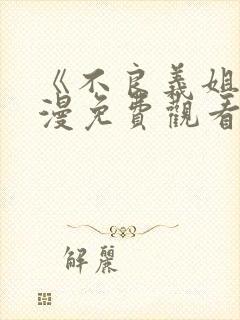 《不良義姐
漫免費觀看
解麗